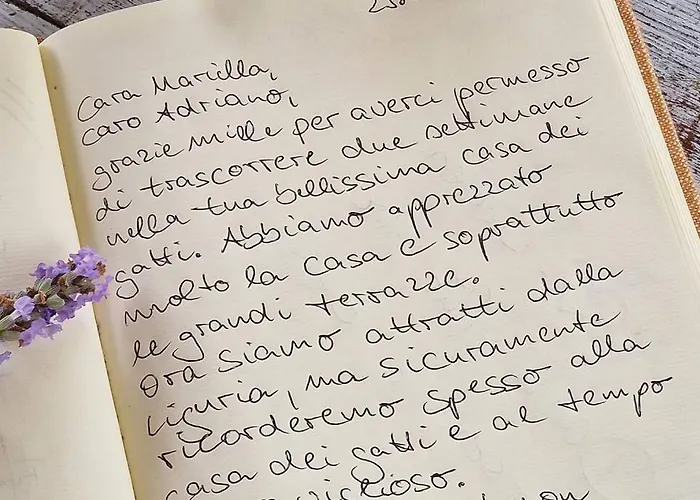 Cara Mariella,
caro Adriano,
grazie mille per averci permesso
di trascorrere due settimane
nella tua bellissima casa dei
gatti. Abbiamo apprezzato
molto la casa e soprattutto
le grandi terrazze.
Ora siamo attratti dalla
Liguria, ma sicuramente
ricorderemo spesso alla
casa dei gatti e al tempo